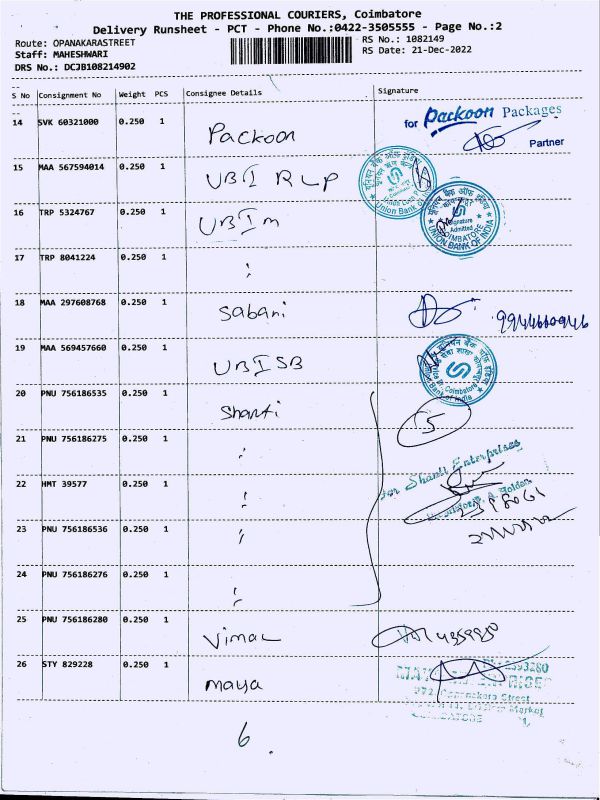 THE PROFESSIONAL COURIERS, Coimbatore
Delivery Runsheet - PCT - Phone No.:0422-3505555 - Page No.:2
Route: OPANAKARASTREET RS No.: 1082149
Staff: MAHESHWARI RS Date: 21-Dec-2022
DRS No.: DCJB108214902
S No Consignment No Weight PCS Consignee Details Signature
14 SVK 60321000 0.250 1 Packoon for Packoon Packages
Partner
15 MAA 567594014 0.250 1 UBI RLP
Union Bank of
16 TRP 5324767 0.250 1 UBI m
Signature
Admitted
COIMBATORE
UNION BANK OF INDIA
17 TRP 8041224 0.250 1 "
18 MAA 297608768 0.250 1 Sabani
19 MAA 569457660 0.250 1 UBI SB
Coimbatore
Union Bank of India
20 PNU 756186535 0.250 1 Shanti 5
21 PNU 756186275 0.250 1 "
For Shanti Enterprises
22 HMT 39577 0.250 1 "
Holder
23 PNU 756186536 0.250 1 "
24 PNU 756186276 0.250 1 "
25 PNU 756186280 0.250 1 Vimal
26 STY 829228 0.250 1 maya
Street
Market
COIMBATORE
6